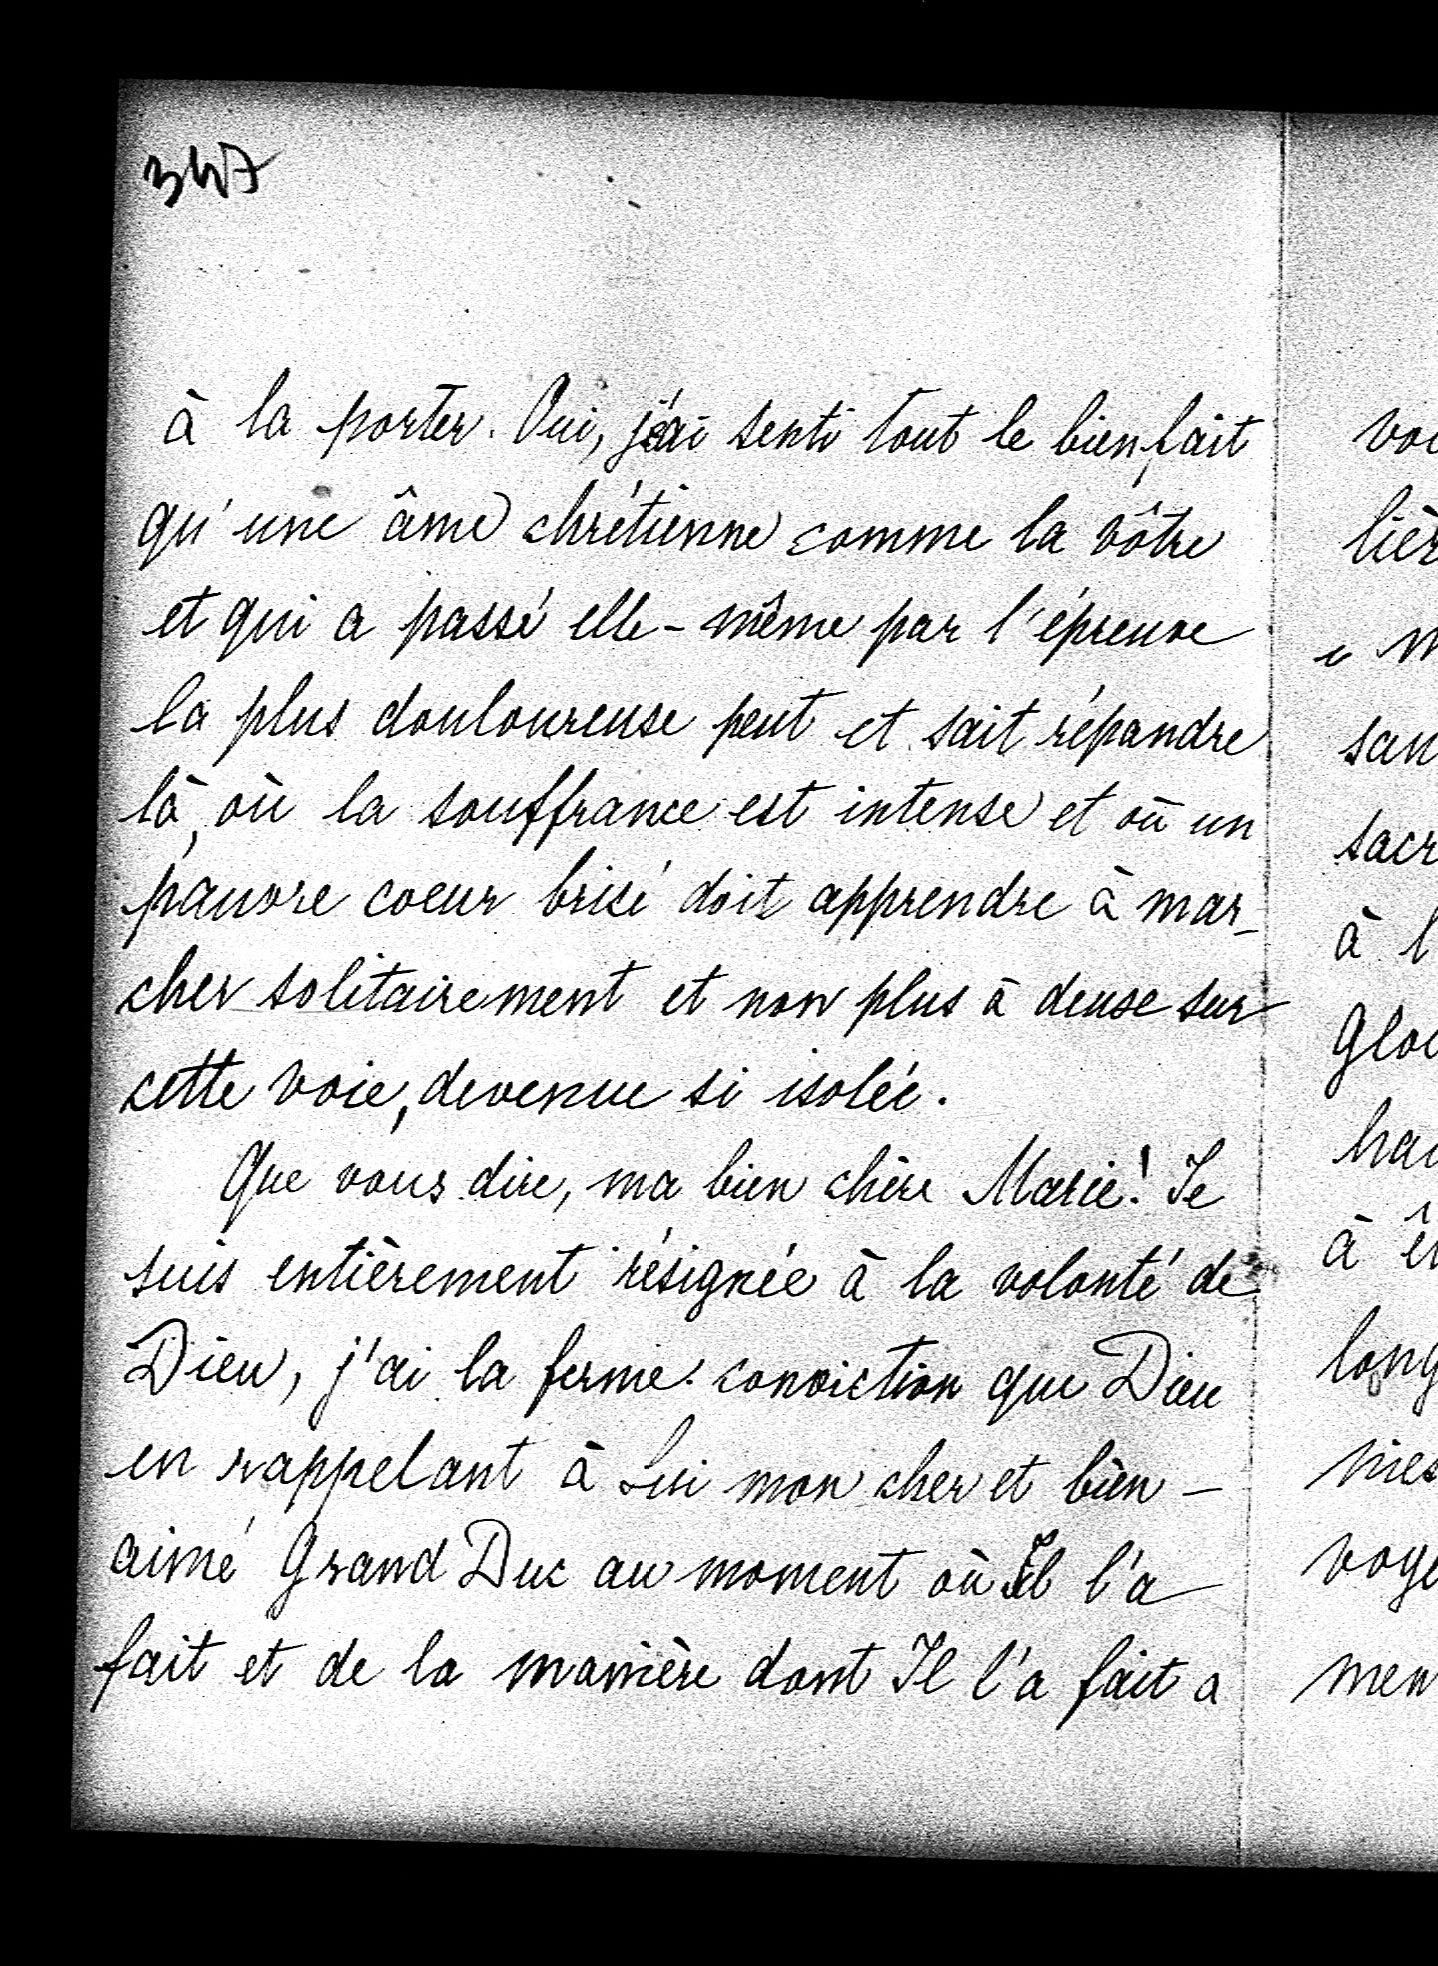 347
à la porter. Oui, j'ai senti tout le bienfait
qu'une âme chrétienne comme la vôtre
et qui a passé elle-même par l'épreuve
la plus douloureuse peut et sait répandre
là, où la souffrance est intense et où un
pauvre coeur brisé doit apprendre à mar-
cher solitairement et non plus à deux sur
cette voie, devenue si isolée.
Que vous dire, ma bien chère Marie! Je
suis entièrement résignée à la volonté de
Dieu, j'ai la ferme conviction que Dieu
en rappelant à Lui mon cher et bien-
aimé Grand Duc au moment où Il l'a
fait et de la manière dont Il l'a fait a